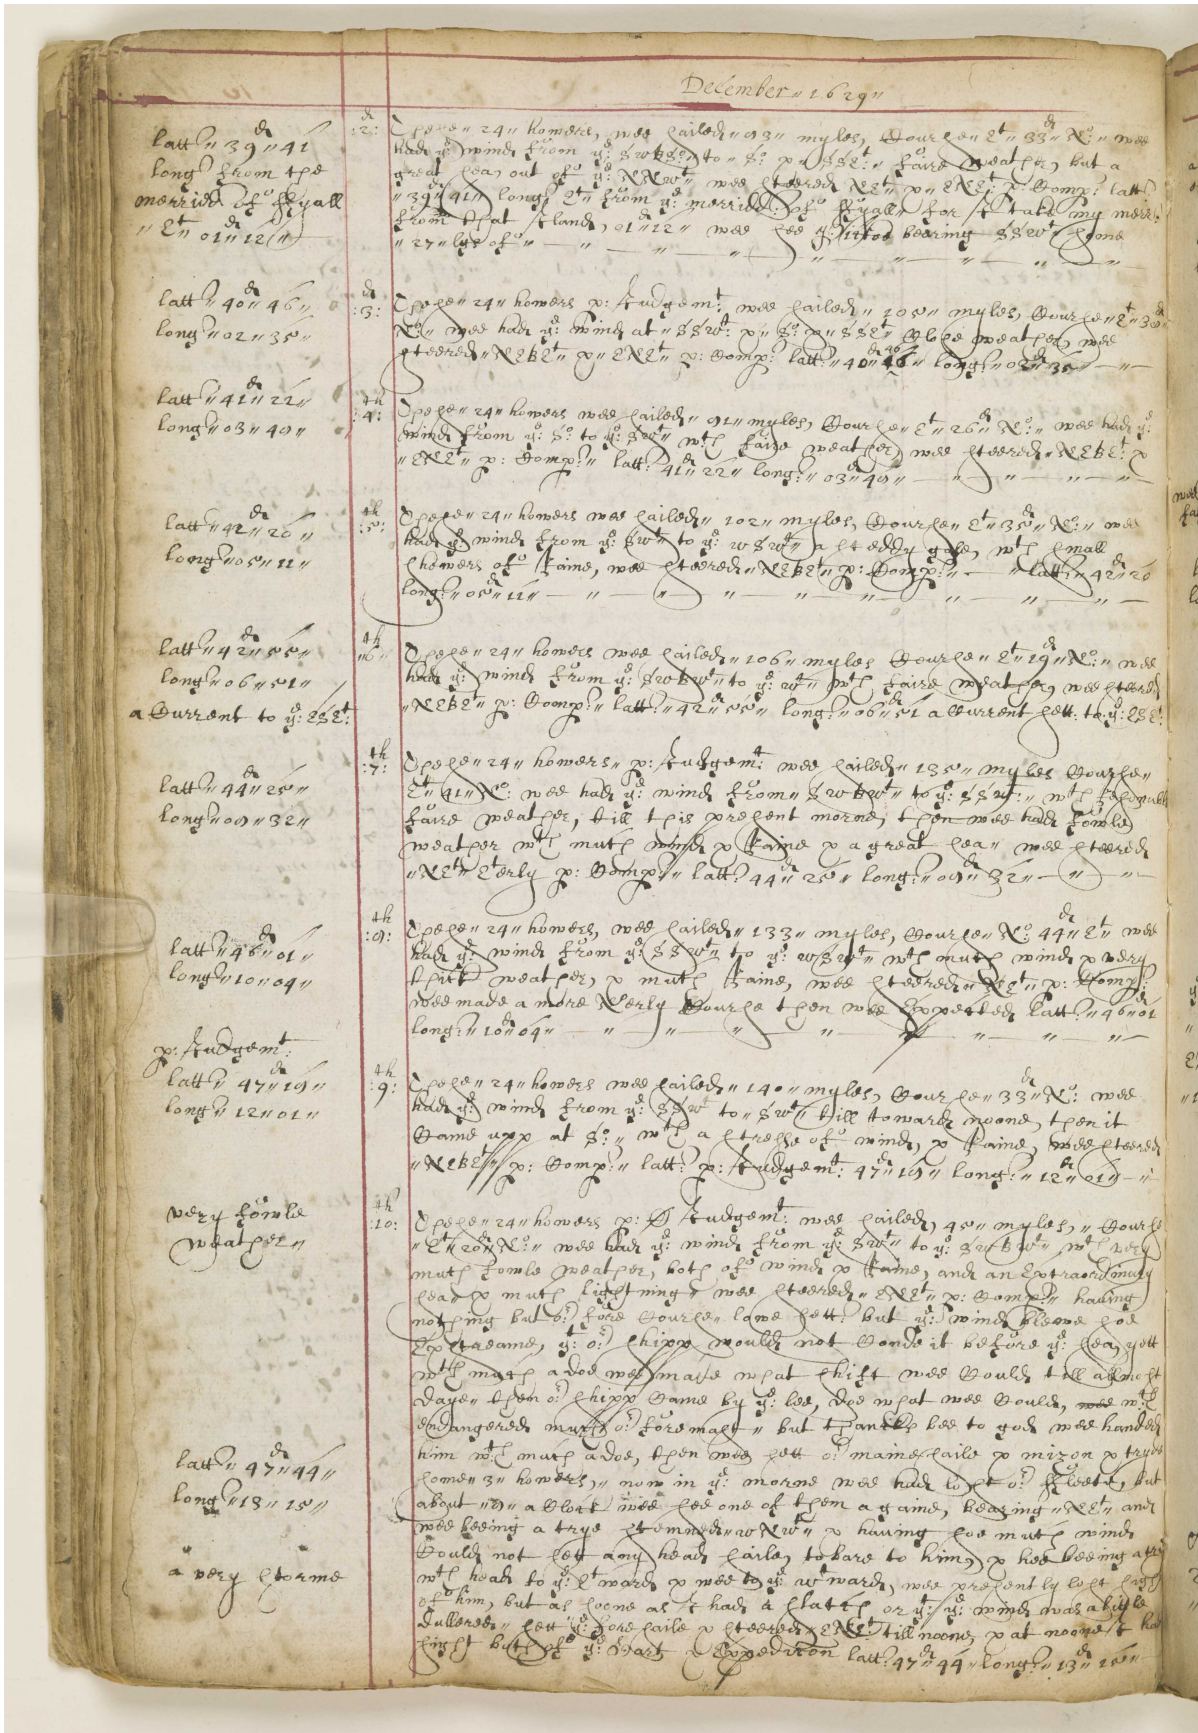 December " 1629 "
latt: " 39 " 41
long: from the
merrid: of ffyall
" Et 01 " 12 "
:2: These " 24 " howers, wee sailed " 93 " myles, Course " Et " 33d " No: " wee
had ye: wind from ye: SWBSo: " to " So: x " SSEt: " faire weather, but a
great sea, out of ye: NNWt " wee steered NEt " x " ENEt p: Comp: latt:
" 39 " 41 " long: Et " from ye: merrid: of ffyall " for I take my merid:
from that Iland, 01d " 12 " wee see ye: bearing SSWt some
" 27 " lgs of "
latt: " 40d " 46 "
long: " 02 " 35 "
:3: These " 24 " howers p: Iudgemt: wee sailed " 105 " myles, Course " Et " 38d "
No: " wee had ye: wind at " SSWt: x " So: x " SSEt " Close weather, wee
steered " NEBEt " x " ENEt " p: Comp: latt: " 40d " 46 " long: " 02d " 35 "
latt: " 41d " 22 "
long: " 03 " 49 "
4th These " 24 " howers wee sailed " 91 " myles, Course " Et " 26d " No: " wee had ye:
wind from ye: So: to ye: SWt " wth faire weather, wee steered " NEBEt: x
" ENEt " p: Comp: " latt: 41d " 22 " long: " 03d " 49 "
latt: " 42d " 20 "
long: " 05 " 11 "
5th These " 24 " howers wee sailed " 102 " myles, Course " Et " 35d " No: " wee
had ye wind from ye: SWt " to ye: WSWt " a steddy gale, wth small
showers of Raine, wee steered " NEBEt " p: Comp: " latt: " 42d " 20
long: " 05d " 11 "
latt: " 42d " 55 "
long: " 06 " 51 "
a Current to ye: ESEt:
6th These " 24 " howers wee sailed " 106 " myles Course " Et " 19d " No: " wee
had ye: wind from ye: SWBWt " to ye: Wt " wth faire weather, wee steered
" NEBEt " p: Comp: " latt: " 42d " 55 " long: " 06d " 51 a Current sett: to ye: ESEt:
latt: " 44d " 25 "
long: " 09 " 32 "
7th These " 24 " howers " p: Iudgemt: wee sailed " 135 " myles Course "
Et " 41 " No: wee had ye: wind from " SWBWt " to ye: SSWt: " wth
faire weather, till this present morne, then wee had fowle
weather wth much wind x Raine x a great sea " wee steered
" NEt " Eterly p: Comp: " latt: 44d " 25 " long: " 09d " 32 "
latt: " 46d " 01 "
long: " 10 " 04 "
These " 24 " howers, wee sailed " 133 " myles, Course " No: 44d " Et " wee
had ye: wind from ye: SSWt to ye: WSWt " wth much wind x very
thick weather, x much Raine, wee steered " NEt " p: Comp:
wee made a more Nerly Course then wee Expected latt: " 46d " 01
long: " 10d " 04 "
p: Iudgemt:
latt: " 47d " 19 "
long: " 12 " 01 "
9th These " 24 " howers wee sailed " 140 " myles, Course " 33d " No: wee
had ye: wind from ye: SSWt to " SWt " till towards noone, then it
Came upp at So: " wth a stresse of wind, x Raine, wee steered
" NEBEt " p: Comp: " latt: p: Iudgemt: 47d " 19 " long: " 12d " 01 "
very fowle
weather "
10th These " 24 " howers p: Iudgemt: wee sailed, 45 " myles, " Course
" Et " 20d " No: " wee had ye: wind from ye: SWt " to ye: SWBWt " wth very
much fowle weather, both of wind x Raine, and an Extraordinary
sea " x much lightning " wee steered " ENEt " p: Comp: " having
nothing but or: fore Course " lowe sett: but ye: wind blewe soe
Extreame, yt: or: shipp would not Conde it before ye: sea, yett
wth much adoe wee made what shift wee Could till allmost
daye " then or: shipp Came by ye: lee, doe what wee Could, wth
endangered much or: foremast " but thancks bee to god wee handed
him wth much adoe, then wee sett or: mainesaile x mizon x tryed
some " 3 " howers, " now in ye: morne wee had lost or: ffleete, but
about " 9 " a Clock wee see one of them againe, bearing " NEt " and
wee beeing a trye stemned " WNWt " x having soe much wind
Could not sett any head saile, to bare to him, x hee beeing a try
wth head to ye: Etward x wee to ye: wtward, wee presently lost sight
of him, but as soone as I had a slatch or yt: ye: wind was a little
dullered " sett ye: fore saile x steered " ENEt till noone, x at noone I had
sight both of ye: Hart x Expedicon latt: 47d " 44 " long: " 13d " 15 "
latt: " 47d " 44 "
long: " 13 " 15 "
a very storme